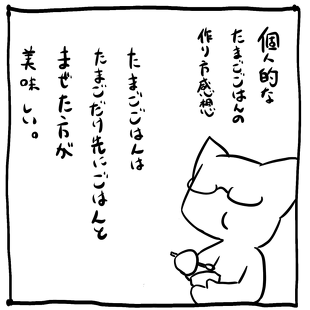 個人的な
たまごごはんの
作り方感想
たまごごはんは
たまごだけ先にごはんと
まぜた方が
美味しい。